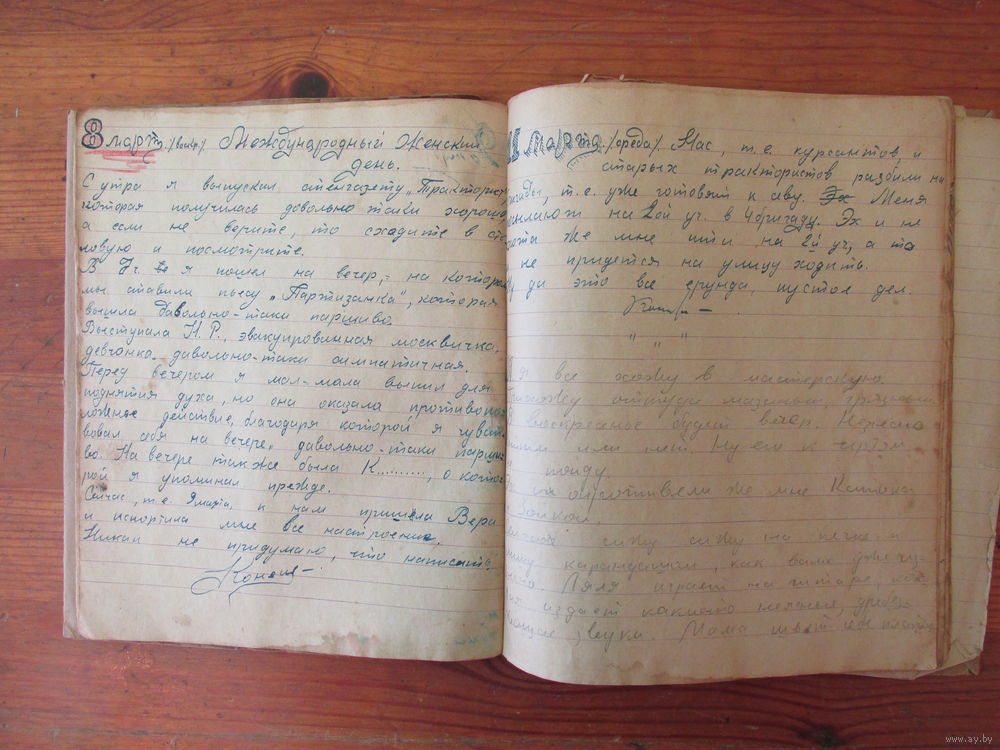 8 март. /воскр./ Международный Женский
день.
С утра я выпускал стенгазету „Тракторист,
которая получилась довольно таки хорошо,
а если не верите, то сходите в сто
ловую и посмотрите.
В 7ч. я пошел на вечер, – на котором
мы ставили пьесу „Партизанка", которая
вышла давольно-таки паршиво.
Выступала Н.Р., эвакуированная москвичка,
девчонка давольно-таки симпатичная.
Перед вечером я мал-мала выпил для
поднятия духа, но она оказала противопо
ложное действие, благодаря которой я чувст
вовал себя на вечере, давольно-таки парши
во. На вечере также была К.........., о кото
рой я упоминал прежде.
Сейчас, т.е. 9 марта, к нам пришла Вера
и испортила мне все настроение.
Никак не придумаю, что написать.
Конец –
11 марта. /среда/. Нас, т.е. курсантов, и
старых трактористов разбили на
гады, т.е. уже готовят к севу. Меня
на 2ой уч. в 4 бригаду. Эх и не
же мне итти на 2й уч, а то
не придется на улицу ходить.
да это все ерунда, пустое дел.
" " "
я все хожу в мастерскую
оттуда грязный
воскресенье будет вечер.
или нет. Ну его к чертям
пойду
опротивели же мне Катька
Зойкой.
сижу на печке и
карандашом, как вам уже из
Ляля играет на гитаре,
издает какие-то нелепые,
звуки. Мама шьет
www.ay.by